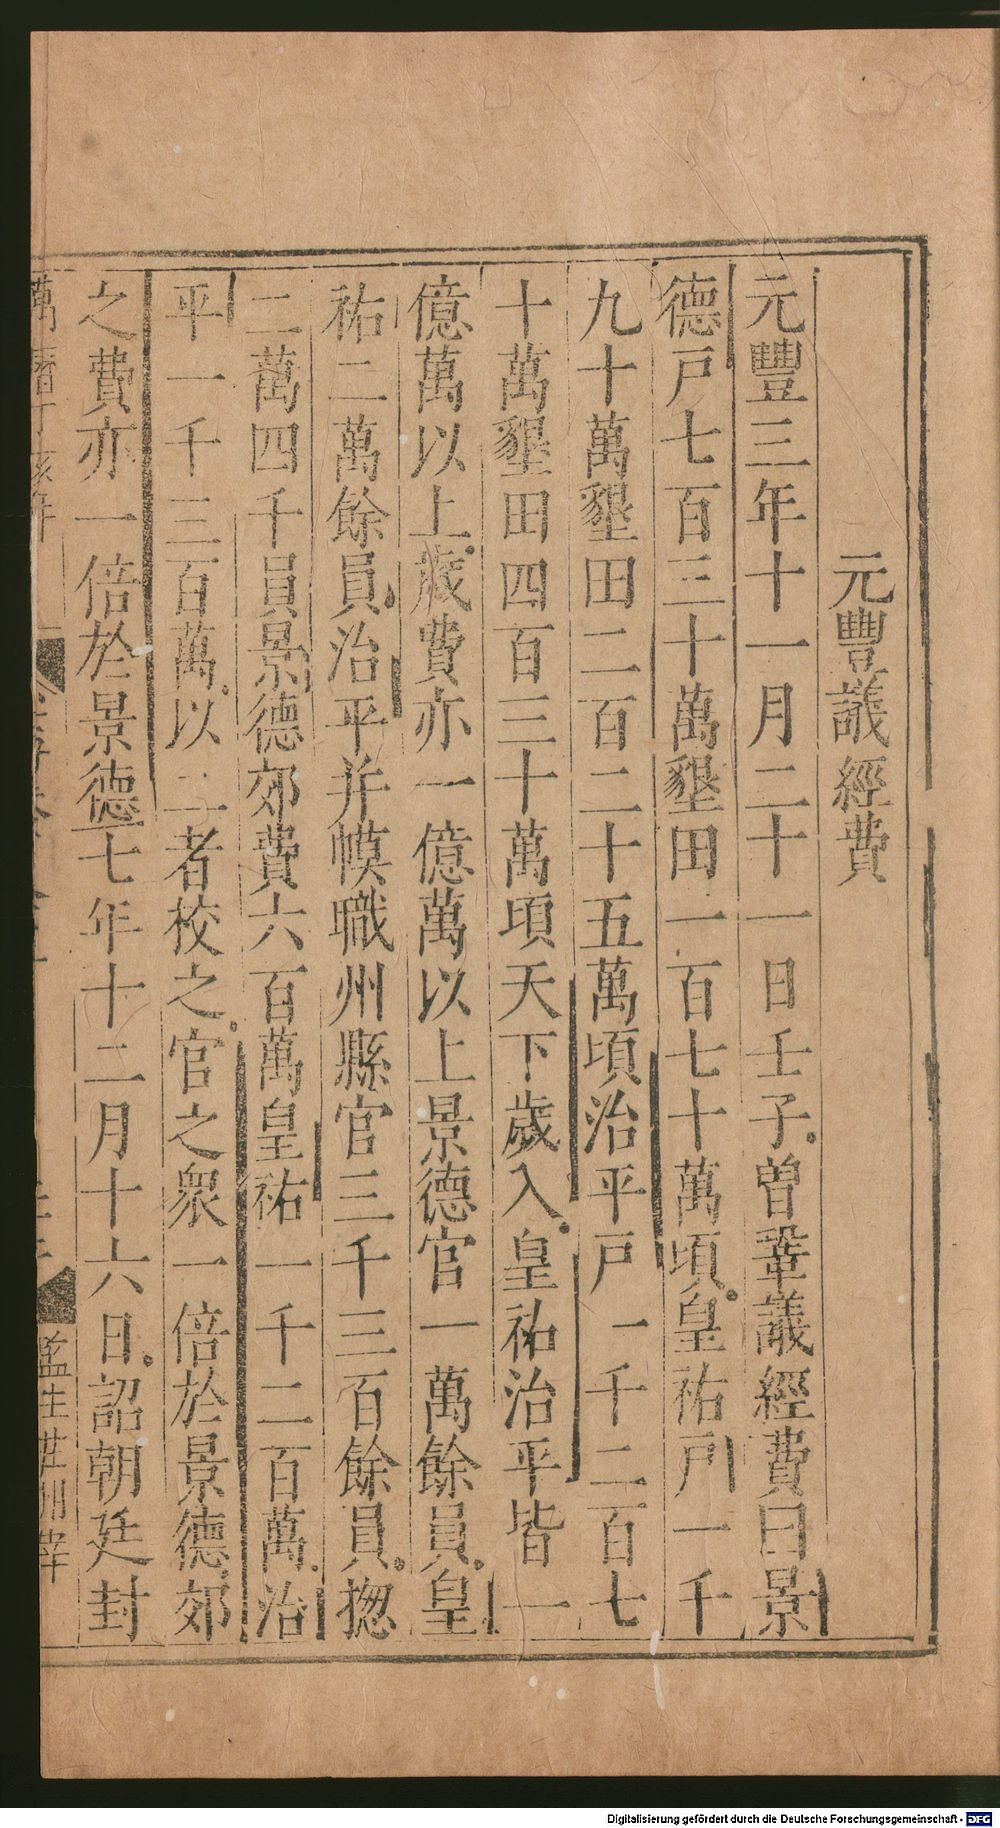 元豐議經費
元豐三年十一月二十一日壬子曽鞏議經費曰景
德戸七百三十萬墾田一百七十萬頃皇祐戸一千
九十萬墾田二百二十五萬頃治平戸一千二百七
十萬墾田四百三十萬頃天下歲入皇祐治平皆一
億萬以上歲費亦一億萬以上景德官一萬餘員皇
祐二萬餘員治平并幙職州縣官三千三百餘員揔
二萬四千員景德郊費六百萬皇祐一千二百萬治
平一千三百萬以二者校之官之衆一倍於景德郊
之費亦一倍於景德七年十二月十六日詔朝廷封
萬曆丁亥年
監生
Digitalisierung gefördert durch die Deutsche Forschungsgemeinschaft - DFG